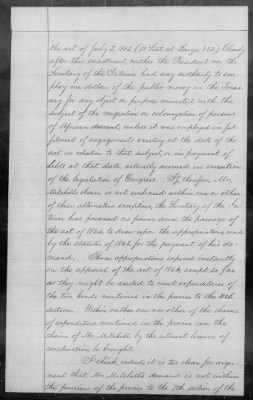 the act of July 2, 1864 (13 Stat. at Large 352). Clearly
after this enactment neither the President nor the
Secretary of the Interior had any authority to em-
ploy one dollar of the public money in the Treas-
ury for any object or purpose connected with the
subject of the migration or colonization of persons
of African descent, unless it was employed in ful-
filment of engagements existing at the date of the
act in relation to that subject, or in payment of
debts at that date actually accrued in execution
of the legislation of Congress. If, therefore, Mr.
Mitchell's claim is not embraced within one or other
of these alternative exceptions, the Secretary of the In-
terior has possessed no power since the passage of
the act of 1864, to draw upon the appropriations made
by the statutes of 1862 for the payment of his de-
mand. Those appropriations expired instantly
on the approval of the act of 1864, except so far
as they might be needed to meet expenditures of
the two kinds mentioned in the proviso to the 7th
section. Within neither one nor other of the classes
of expenditure mentioned in the proviso can the
claim of Mr. Mitchell, by the utmost license of
construction be brought.
I think, indeed, it is too clear for argu-
ment that Mr. Mitchell's demand is not within
the purview of the proviso to the 7th section of the